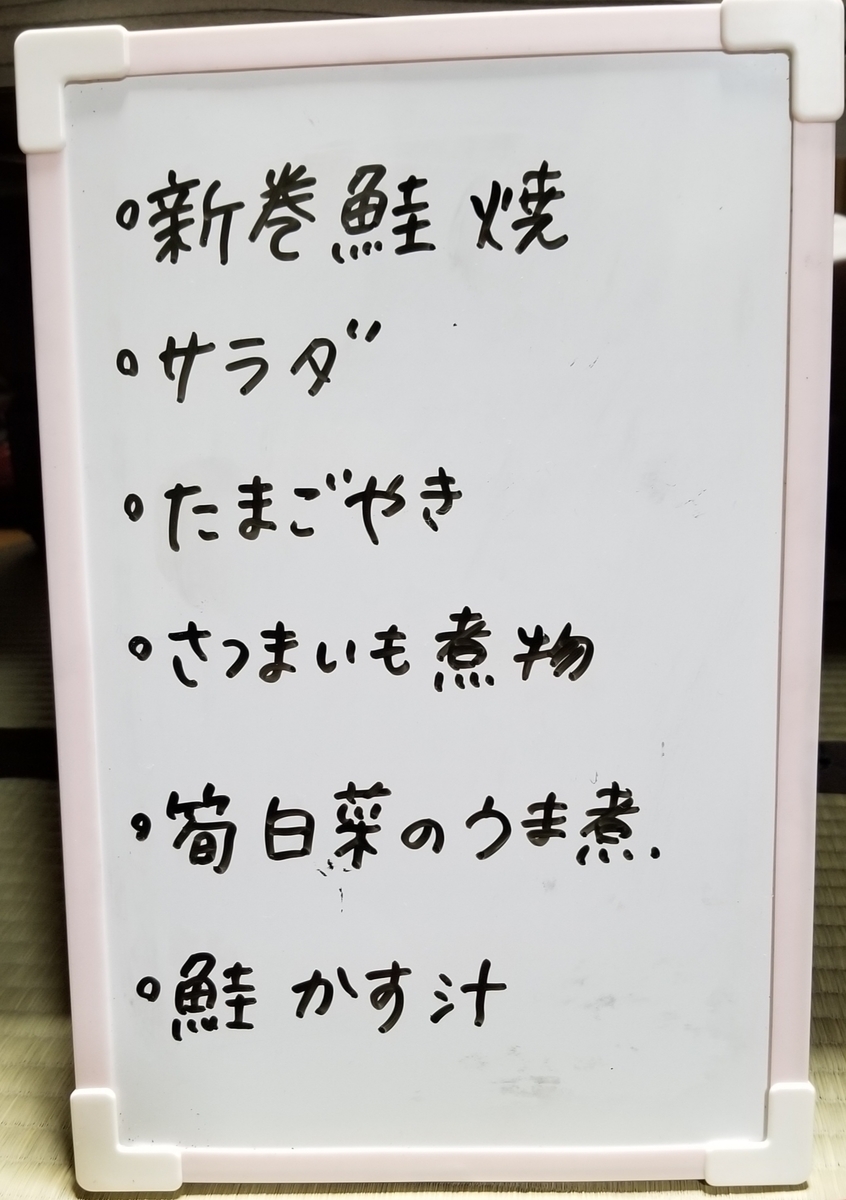 ○新巻鮭 焼
○サラダ
○たまごやき
○さつまいも煮物
○筍白菜のうま煮
○鮭 かす汁